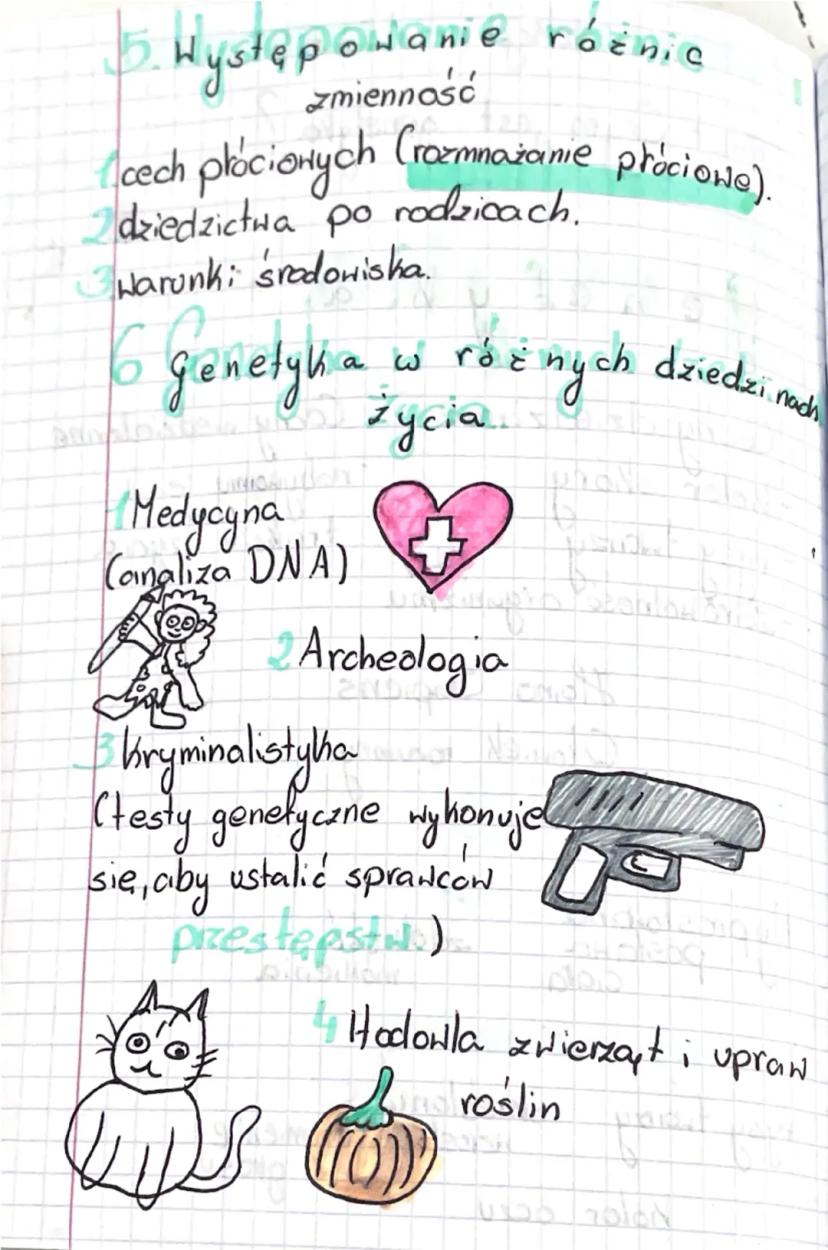 5. Występowanie różnic
zmienność
1 cech płciowych (rozmnażanie płciowe).
2 dziedzictwa po rodzicach.
3 warunki środowiska.
6 Genetyka w różnych dziedzinach
życia
1 Medycyna
(analiza DNA)
2 Archeologia
3 kryminalistyka
(testy genetyczne wykonuje
się, aby ustalić sprawców
przestępstw.)
4 Hodowla zwierząt i upraw
roślin